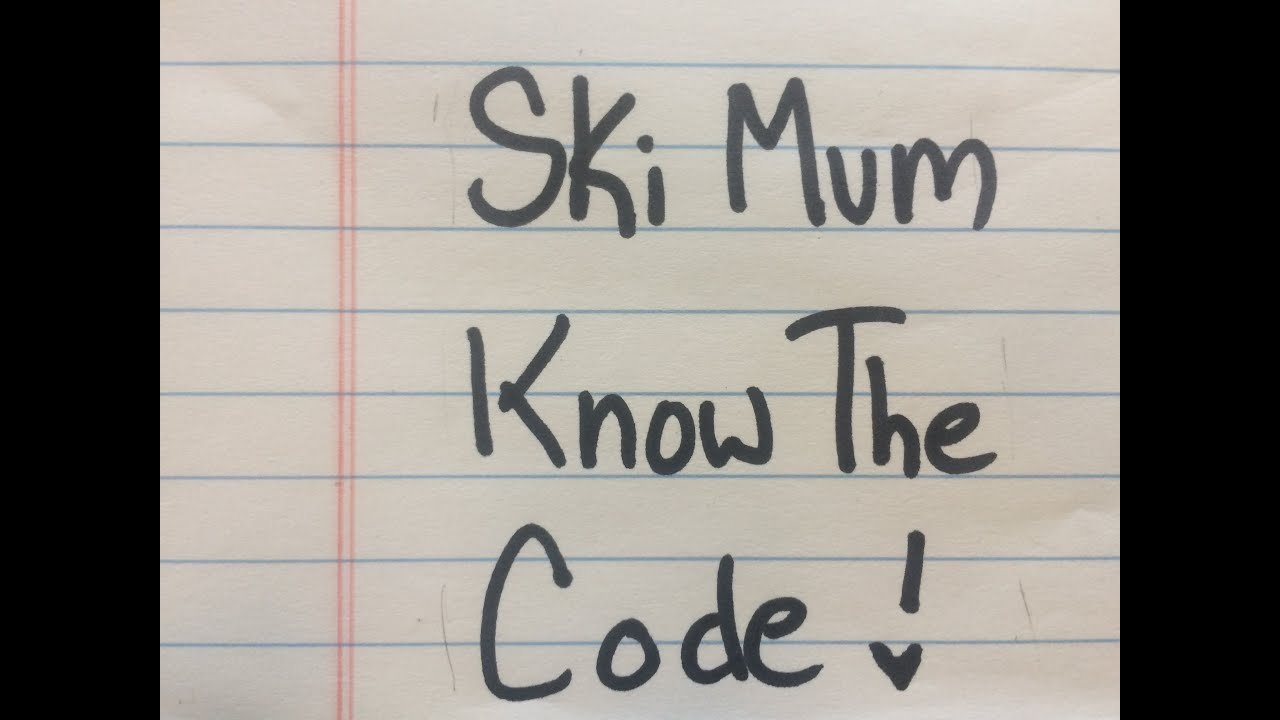 Ski Mum
Know The
Code!